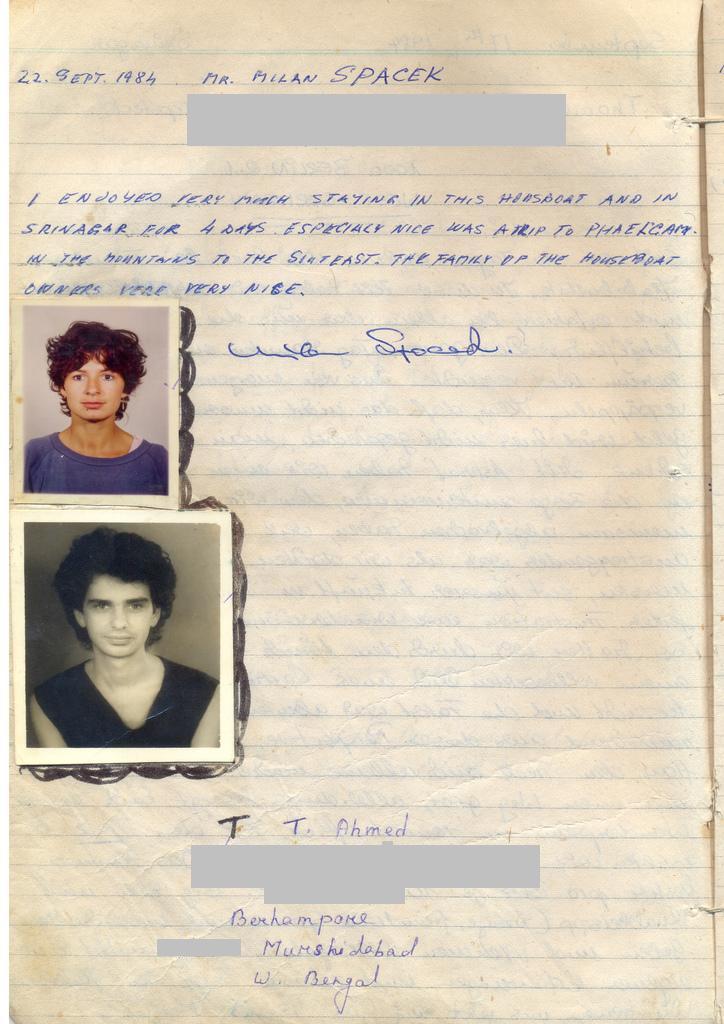 22. SEPT. 1984 MR. MILAN SPACEK
I ENJOYED VERY MUCH STAYING IN THIS HOUSBOAT AND IN
SRINAGAR FOR 4 DAYS. ESPECIALY NICE WAS A TRIP TO
IN THE MOUNTAINS TO THE THE FAMILY OF THE HOUSEBOAT
OWNERS VERE VERY NICE.
T T. Ahmed
Berhampore
Murshidabad
W. Bengal